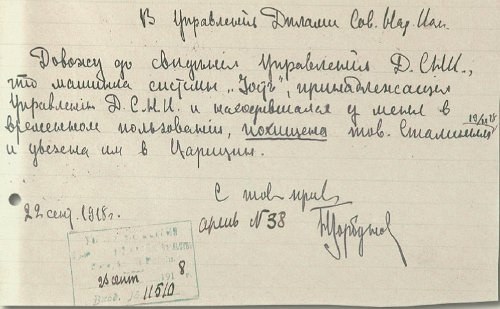 В Управленіе Дѣлами Сов. Нар. Ком.
Довожу до свѣдѣнія Управленія Д.С.Н.К.,
что машинка системы „Гост", принадлежащая
Управленію Д.С.Н.К. и находившаяся у меня в
временном пользованіи, похищена тов. Сталиным
и увезена им в Царицын.
С тов. прив.
22 сент. 1918 г.
армія N 38
Горбунов
25 сент 191 8
Вход. 11510